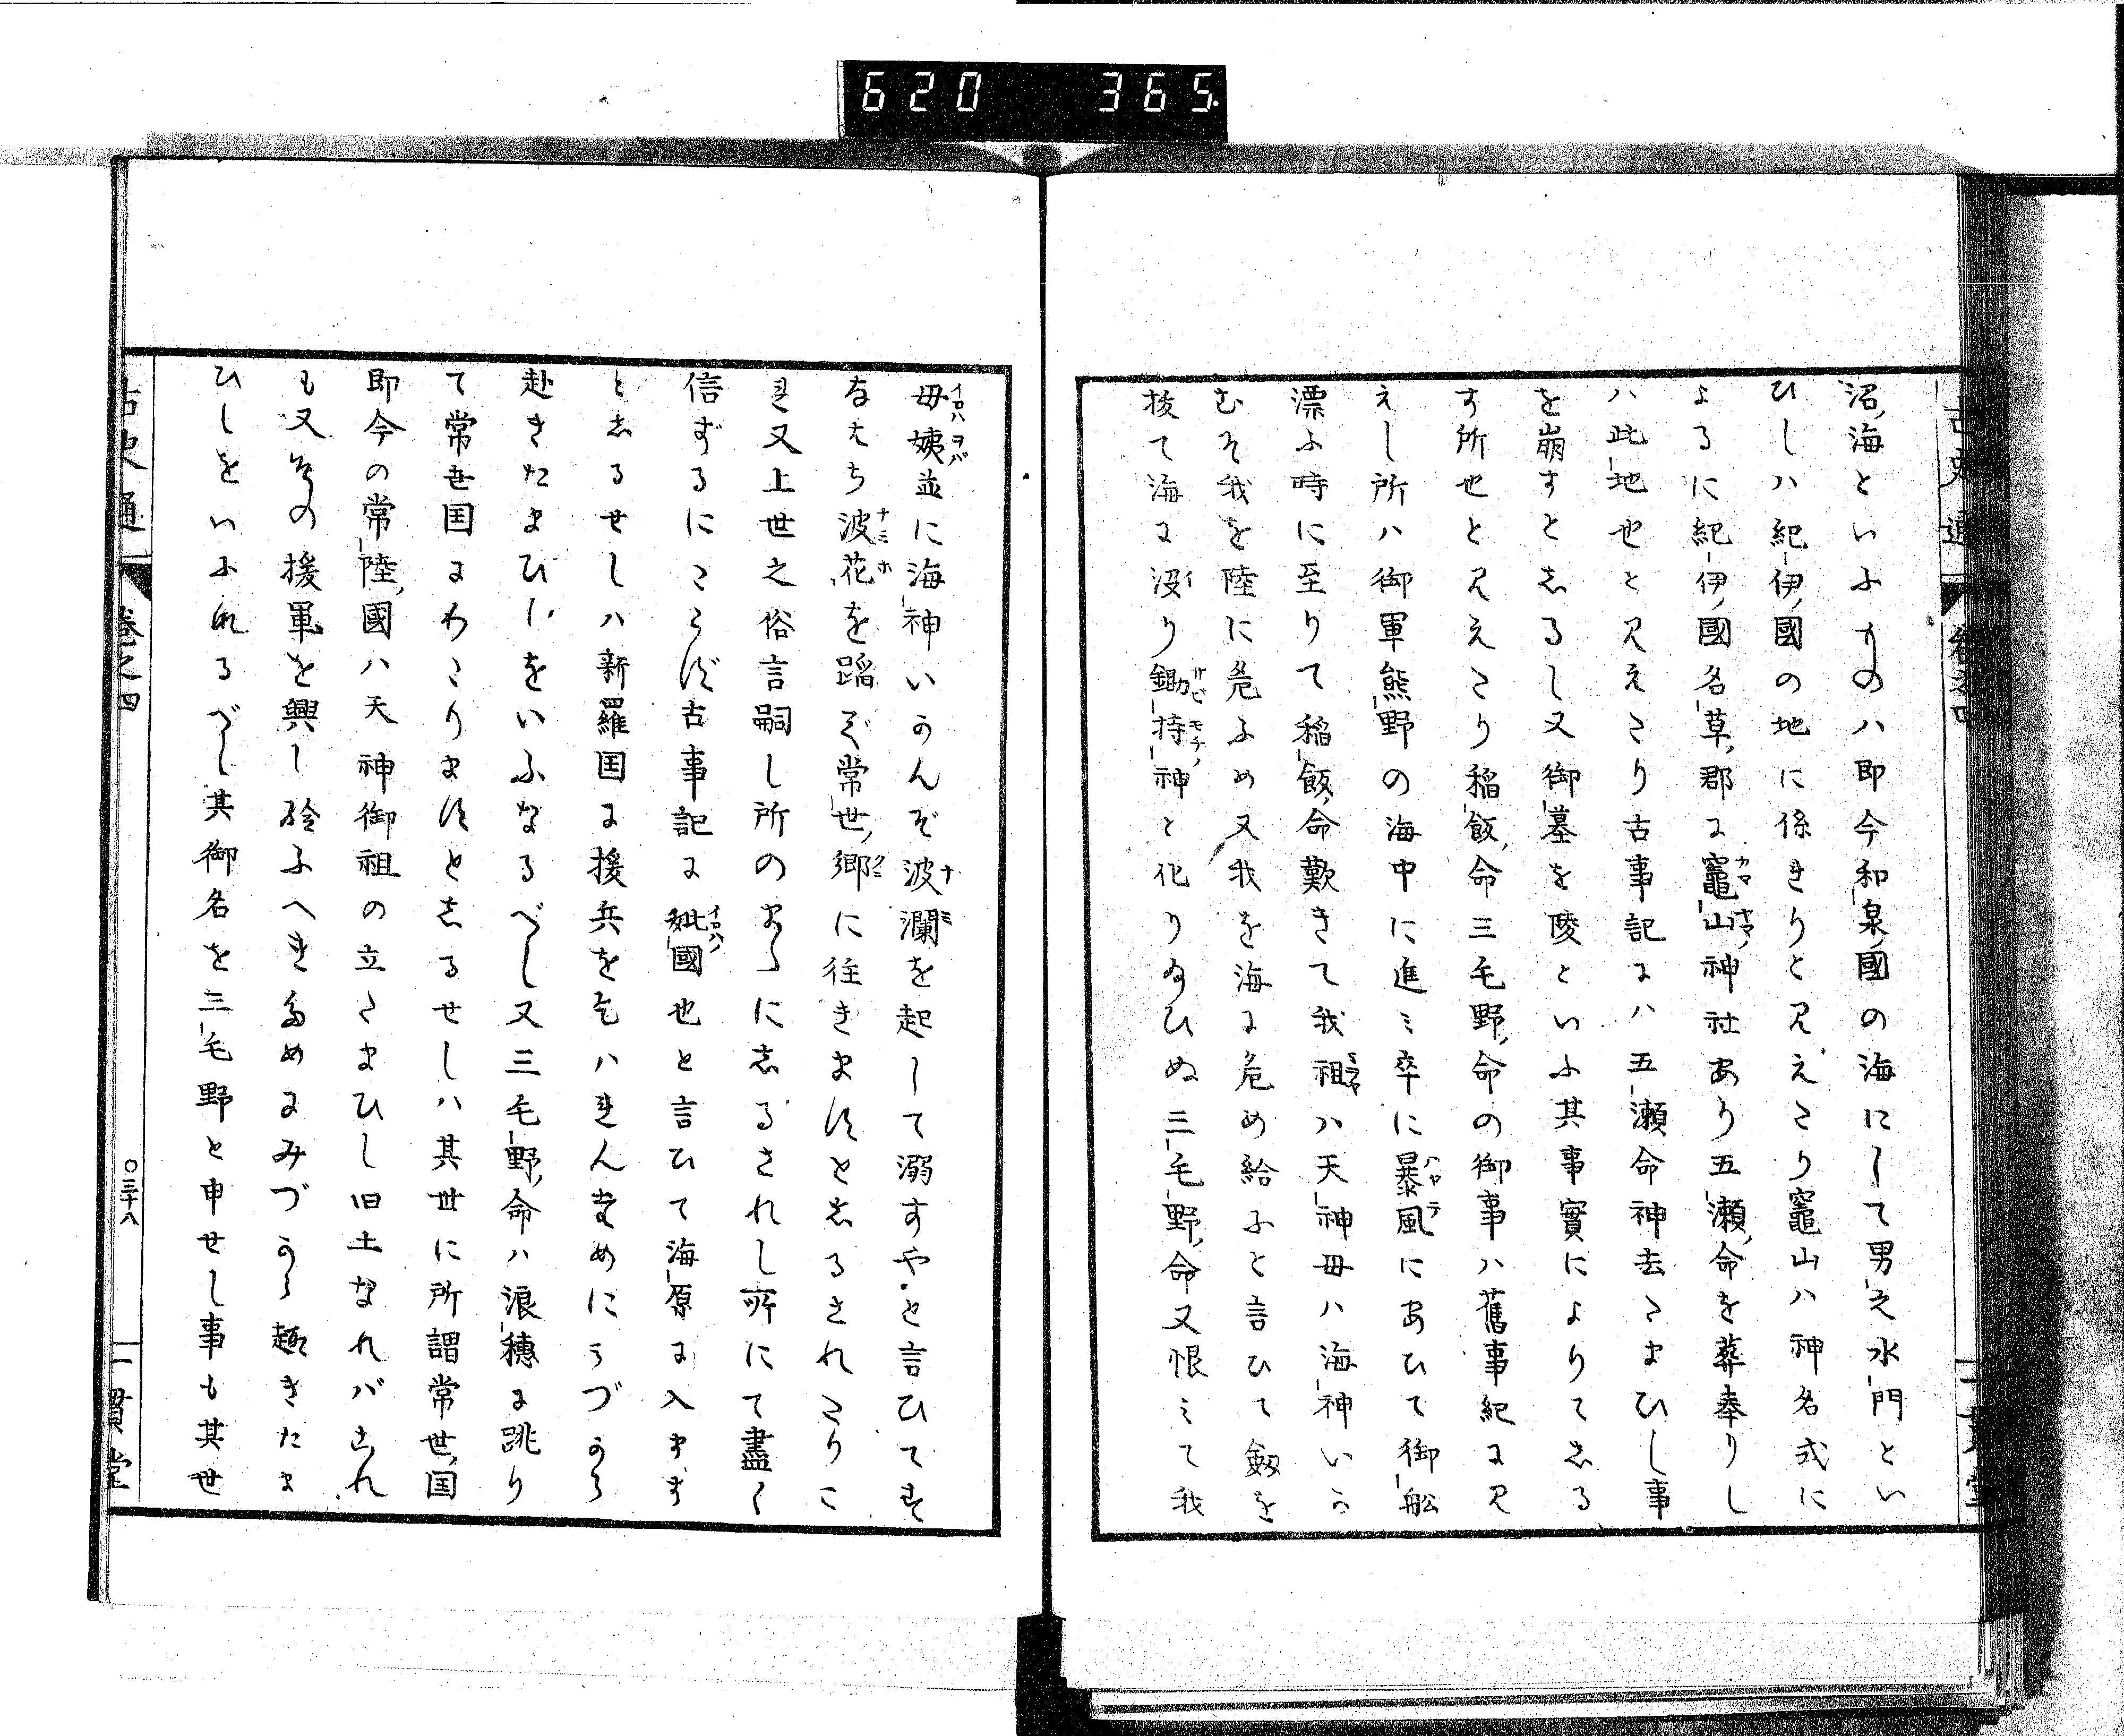 620 365
古史通 卷之四
沼海といふものハ即今和泉國の海にして男之水門とい
ひしハ紀伊國の地に係きりと見えたり竈山ハ神名式に
よるに紀伊國名草郡に竈山神社あり五瀬命を葬奉りし
ハ此地也と見えたり古事記にハ五瀬命神去たまひし事
を崩すとしるし又御墓を陵といふ其事實によりてしる
す所也と見えたり稲飯命三毛野命の御事ハ舊事紀に見
えし所ハ御軍熊野の海中に進ミ卒に暴風にあひて御舩
漂ふ時に至りて稲飯命歎きて我祖ハ天神母ハ海神いか
むそ我を陸に危ふめ又我を海に危め給ふと言ひて劔を
拔て海に沒り鋤持神と化り給ひぬ三毛野命又恨ミて我
母姨並に海神いかんぞ波瀾を起して溺すやと言ひてす
なはち波花を蹈ぞ常世郷に往きますとしるされたりこ
れ又上世之俗言嗣し所のまゝにしるされし所にて盡く
信ずるにたらず古事記に妣國也と言ひて海原に入ます
としるせしハ新羅国に援兵を乞ハれんためにミづから
赴きたまひしをいふなるべし又三毛野命ハ浪穂に跳り
て常世国にわたりますとしるせしハ其世に所謂常世国
即今の常陸國ハ天神御祖の立たまひし旧土なれバこれ
も又その援軍を興し給ふへきためにみづから趣きたま
ひしをいふれるべし其御名を三毛野と申せし事も其世
古史通 卷之四 〇三十八 一貫堂